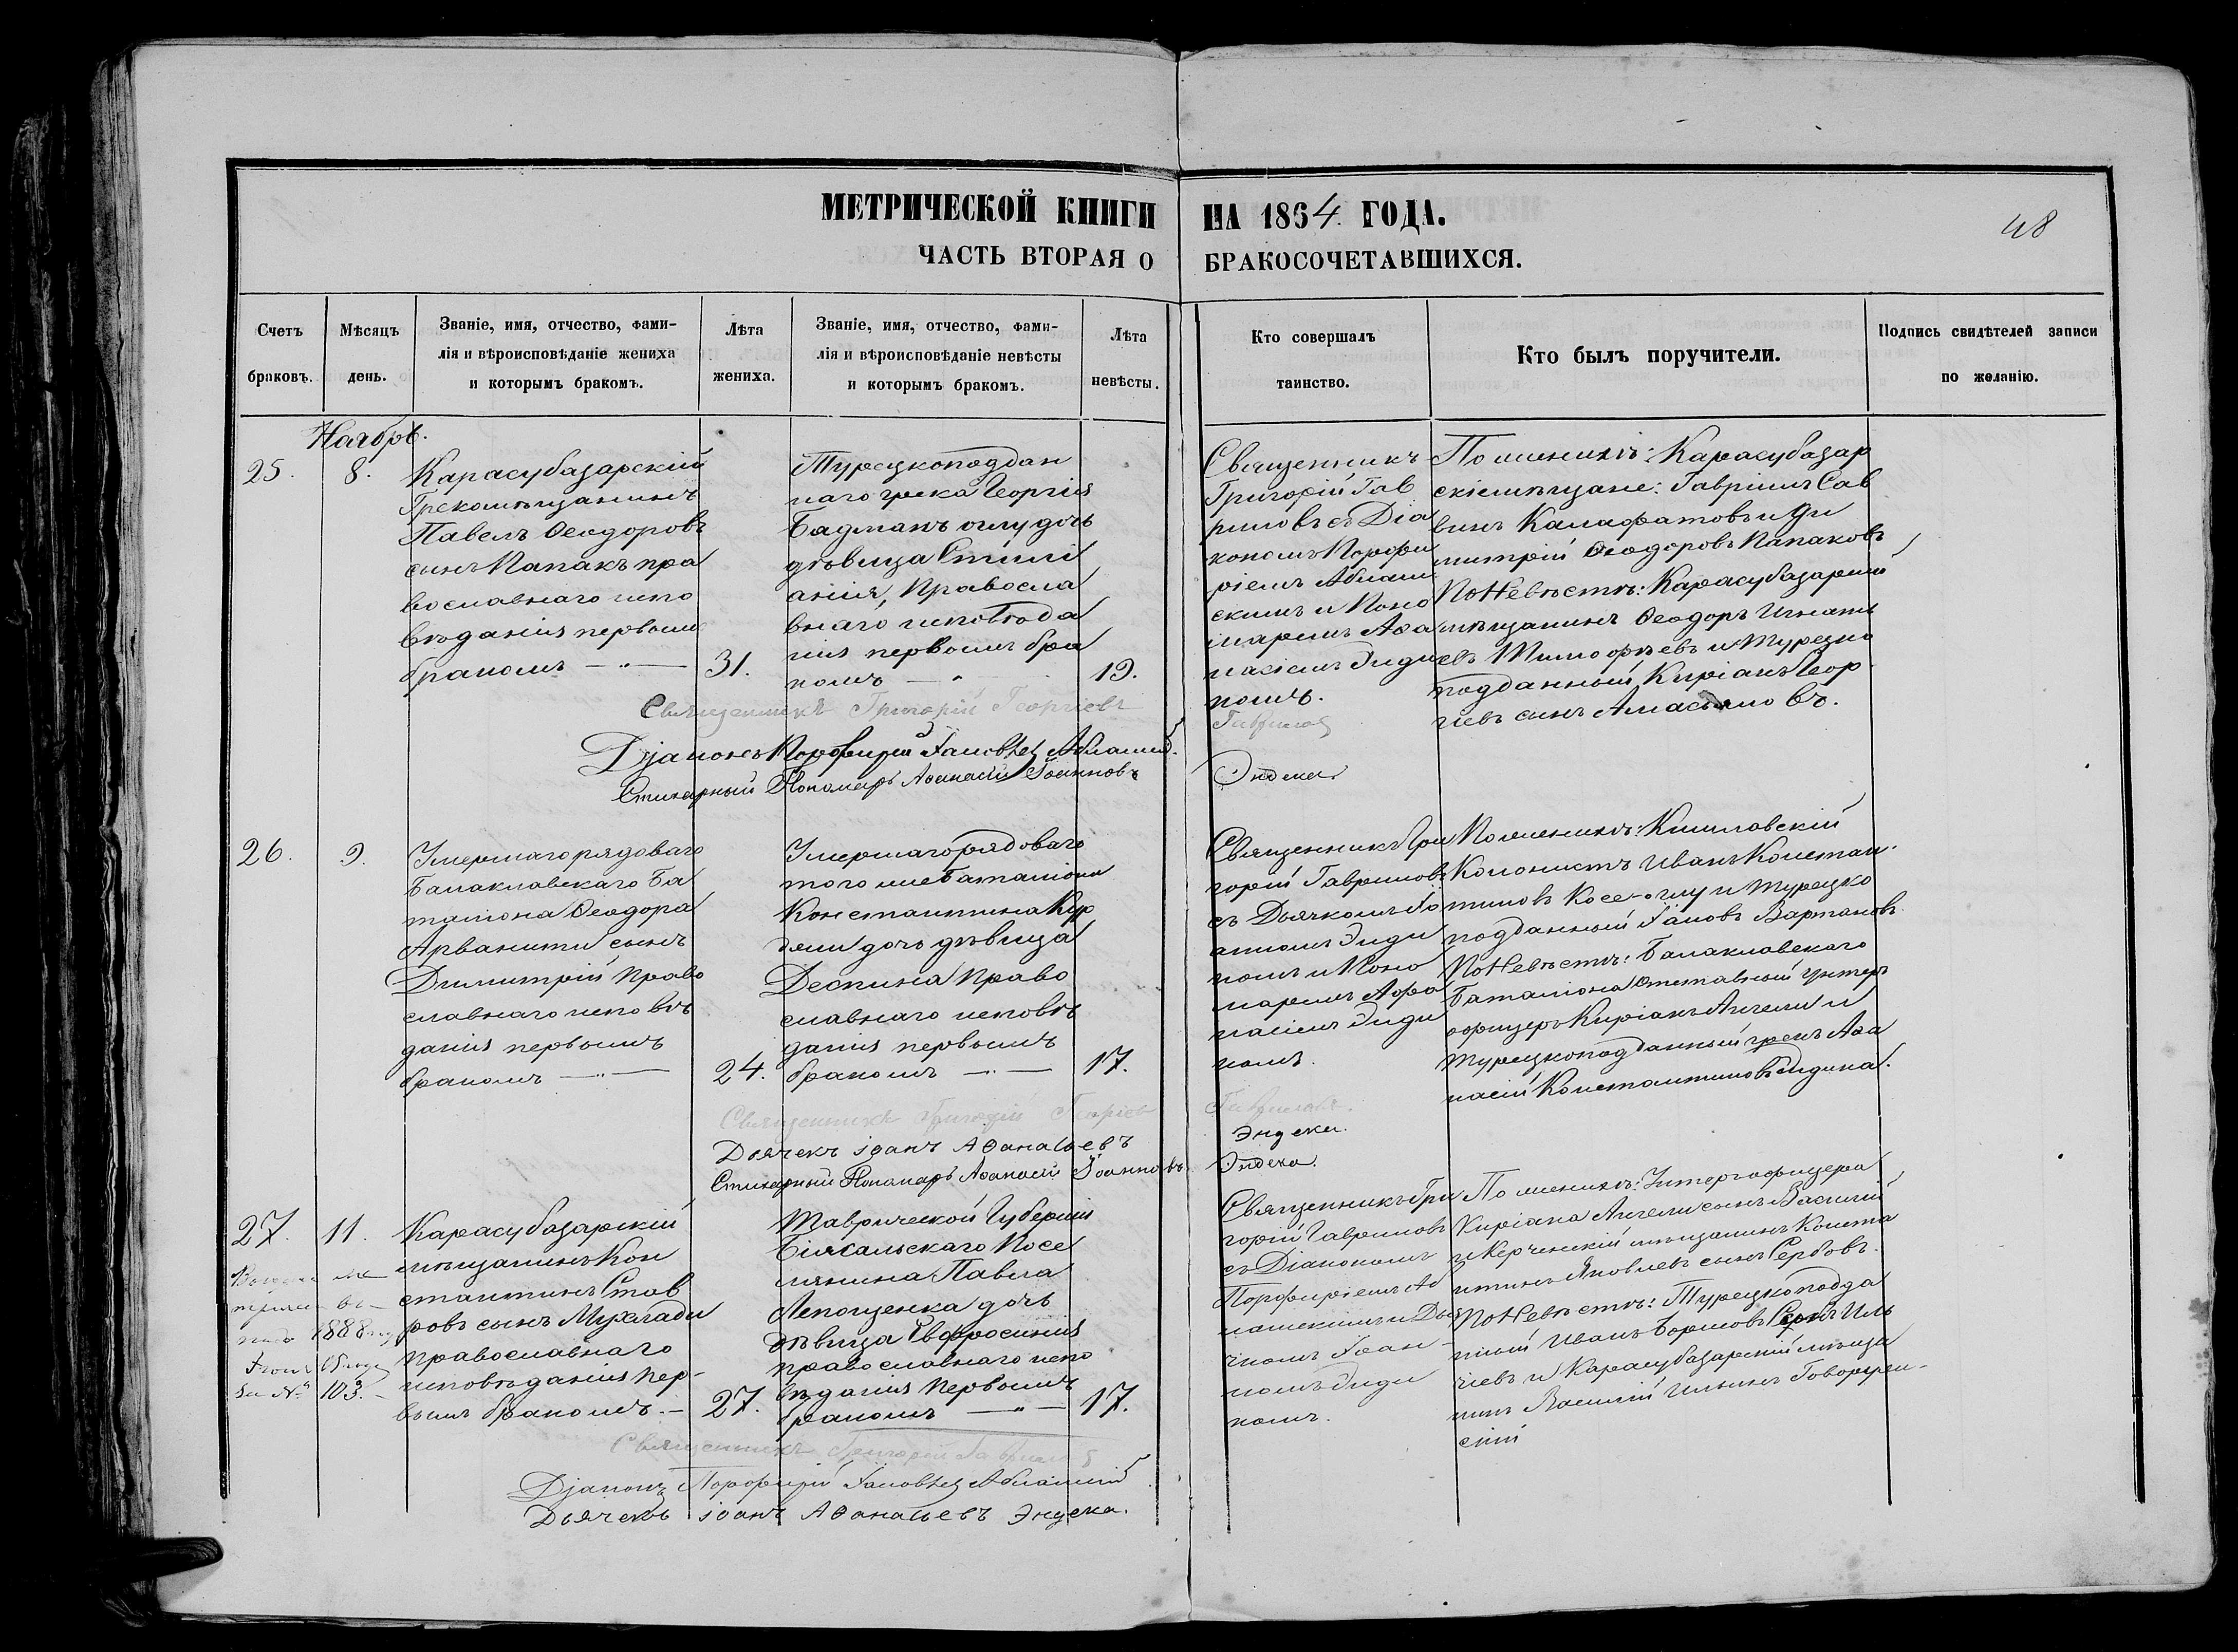 МЕТРИЧЕСКОЙ КНИГИ НА 1864. ГОДА.
ЧАСТЬ ВТОРАЯ О БРАКОСОЧЕТАВШИХСЯ.
48
Счетъ
браковъ.
Мѣсяцъ
день.
Званіе, имя, отчество, фами-
лія и вѣроисповѣданіе жениха
и которымъ бракомъ.
Лѣта
жениха.
Званіе, имя, отчество, фами-
лія и вѣроисповѣданіе невѣсты
и которымъ бракомъ.
Лѣта
невѣсты.
Кто совершалъ
таинство.
Кто былъ поручители.
Подпись свидѣтелей записи
по желанію.
25.
8.
Карасубазарскій
Грекомѣщанинъ
Павелъ Ѳеодоровъ
сынъ Папакъ пра
вославнаго испо
вѣданія первымъ
бракомъ
31.
Турецкоподдан
наго грека Георгія
дочь
дѣвица
Правосла
внаго исповѣда
нія первымъ бра
комъ
19.
Священникъ
Григорій Гав
риловъ съ Діа
кономъ Порфи
ріемъ
скимъ и Поно
маремъ Аѳа
насіемъ Энди
комъ.
По женихѣ: Карасубазар
скіе мѣщане: Гавріилъ Сав
винъ Калафатовъ и Ди
митрій Ѳеодоровъ Папаковъ
По Невѣстѣ: Карасубазарскій
мѣщанинъ Ѳеодоръ Игнать
евъ Тимофѣевъ и Турецко
подданный Киріакъ Геор
гіевъ сынъ
Священникъ Григорій Георгіевъ
Гавриловъ
Діаконъ Порфирій
Стихарный Пономарь Аѳанасій Іоанновъ Эндека
26.
9.
Умершаго рядоваго
Балаклавскаго Ба
таліона Ѳеодора
Арванити сынъ
Димитрій Право
славнаго исповѣ
данія первымъ
бракомъ
24.
Умершаго рядоваго
того же Баталіона
Константина
дочь дѣвица
Деспина Право
славнаго исповѣ
данія первымъ
бракомъ
17.
Священникъ Гри
горій Гавриловъ
съ Дьячкомъ Іо
анномъ Энди
комъ и Поно
маремъ Аѳа
насіемъ Энди
комъ.
По женихѣ:
Колонистъ Иванъ Констан-
тиновъ Косе-оглу и Турецко
подданный Вартановъ
По Невѣстѣ: Балаклавскаго
Баталіона Отставный Унтеръ
офицеръ Киріакъ Ангели и
Турецкоподданный грекъ Аѳа
насій Константиновъ
Священникъ Григорій Георгіев
Гавриловъ.
Дьячекъ іоанъ Аѳанасьевъ Эндека.
Стихарный Пономарь Аѳанасій Іоанновъ Эндека.
27.
11.
1888
За № 103.
Карасубазарскій
мѣщанинъ Кон
стантинъ Став
ровъ сынъ Мухлади
православнаго
исповѣданія пер-
вымъ бракомъ.
27.
Таврической Губерніи
Біясальскаго Посе
лянина Павла
дочь
дѣвица Евфросинія
православнаго испо
вѣданія Первымъ
бракомъ
17.
Священникъ Гри
горій Гавриловъ
съ Діакономъ
Порфиріемъ Аб
и Дья
чкомъ Іоан-
номъ Энди
комъ.
По женихѣ: Унтеръ офицера
Киріака Ангели сынъ Василій
и Керченскій мѣщанинъ Конста
нтинъ Яковлевъ сынъ Сербовъ.
По Невѣстѣ: Турецкоподда
нный Иванъ
и Карасубазарскій мѣща
нинъ Василій Ильинъ
Священникъ Григорій Гавриловъ
Діаконъ Порфирій
Дьячекъ іоанъ Аѳанасьевъ Эндека.